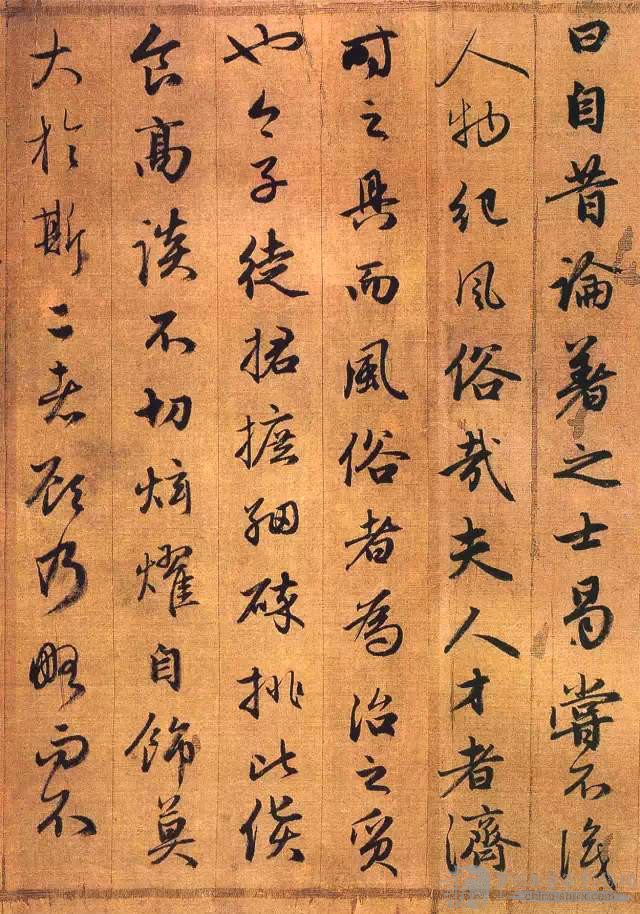 曰自昔論著之士曷嘗不識
人物紀風俗哉夫人才者濟
時之具而風俗者為治之質
也今子徒捃摭細碎排比貨
食高談不切炫耀自飾莫
大於斯二者顧乃略而不